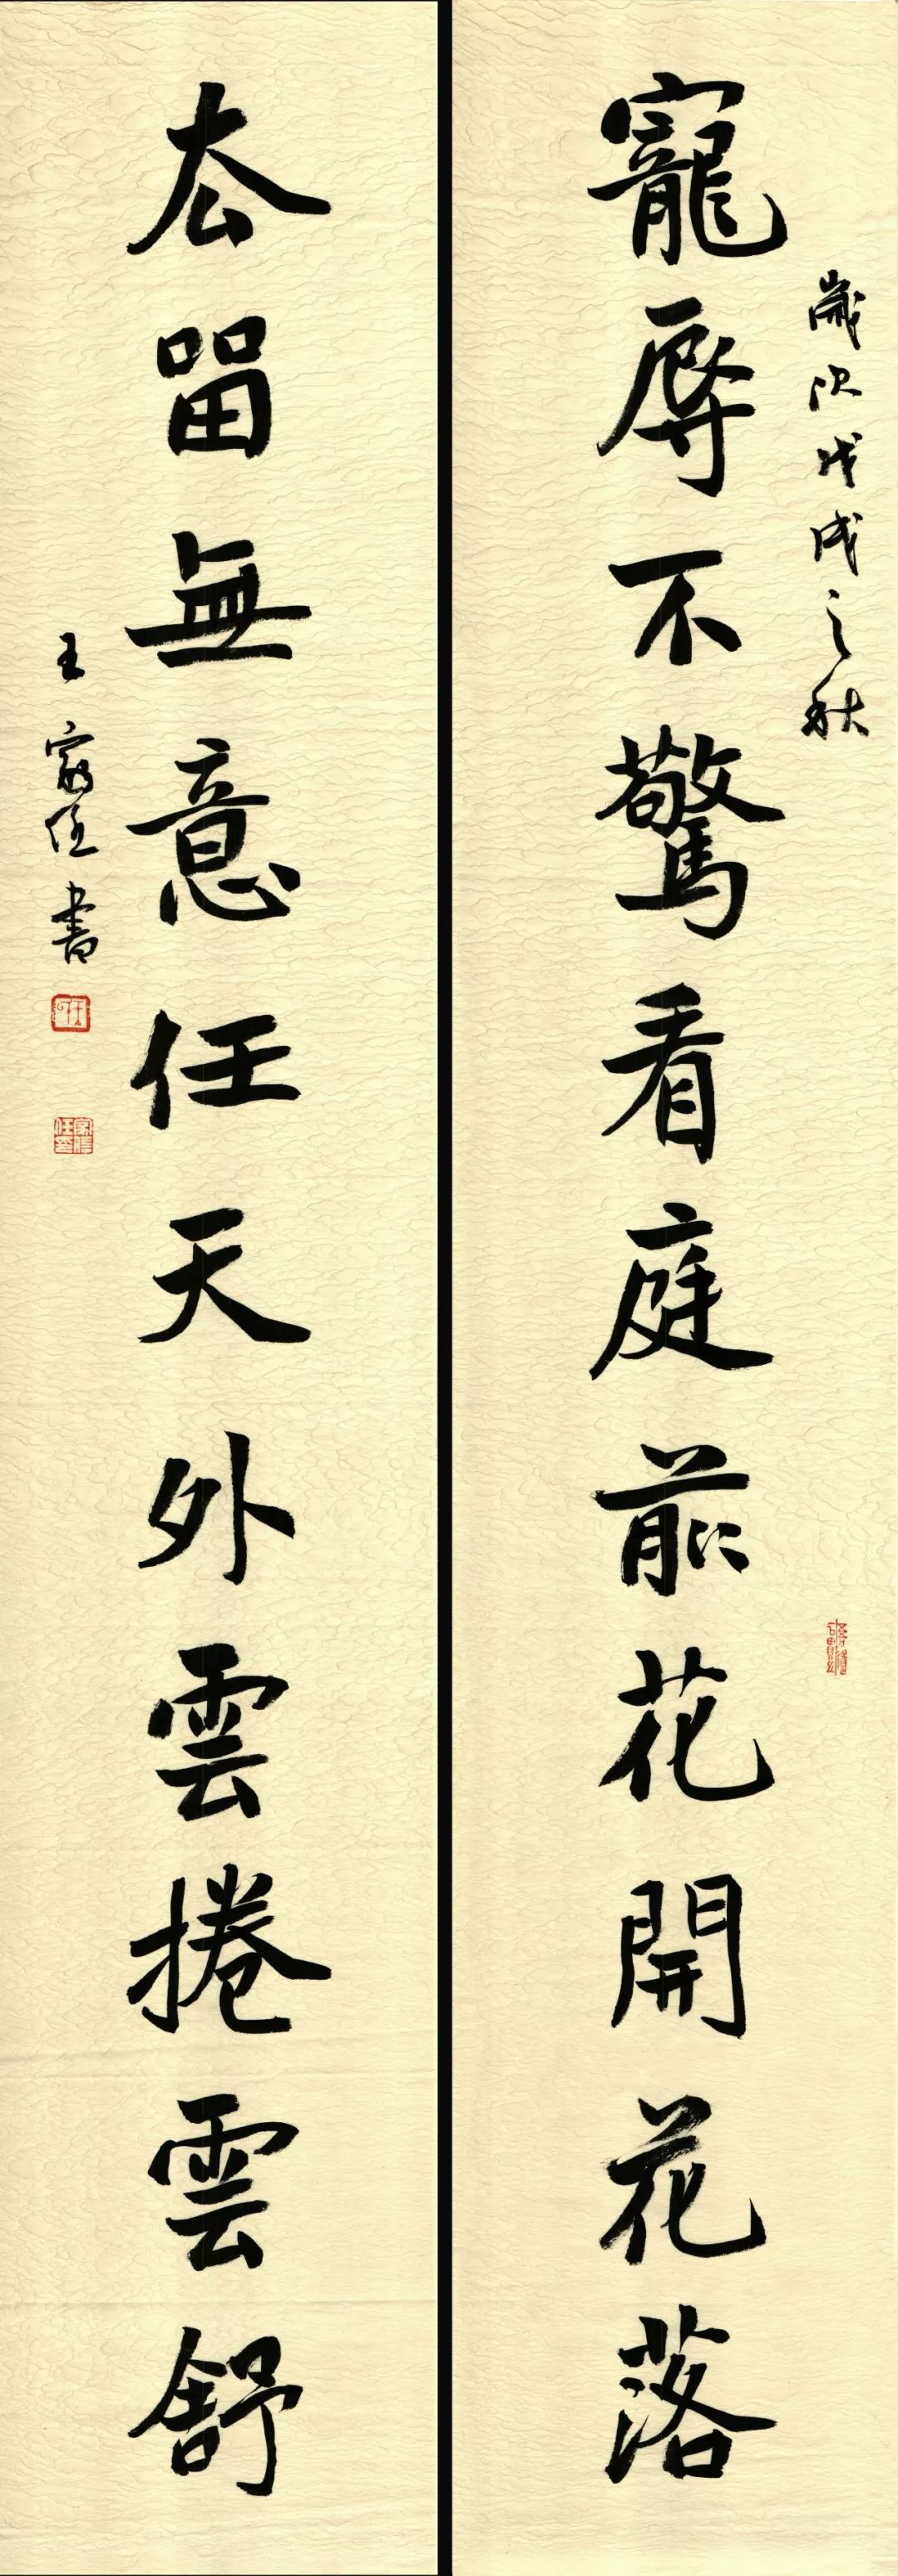 歲次戊戌之秋
寵辱不驚看庭前花開花落
去留無意任天外雲捲雲舒
王家書